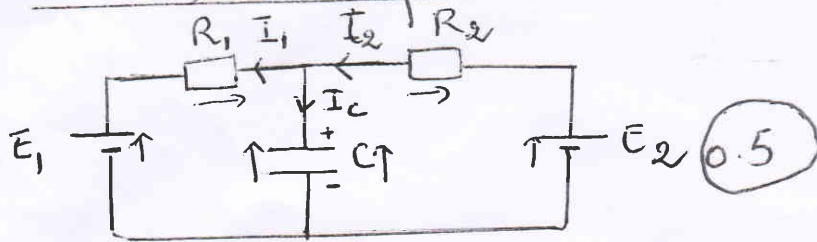 R₁ I₁ I₂ R₂
I_c
E₁ + C E₂ 0.5
-